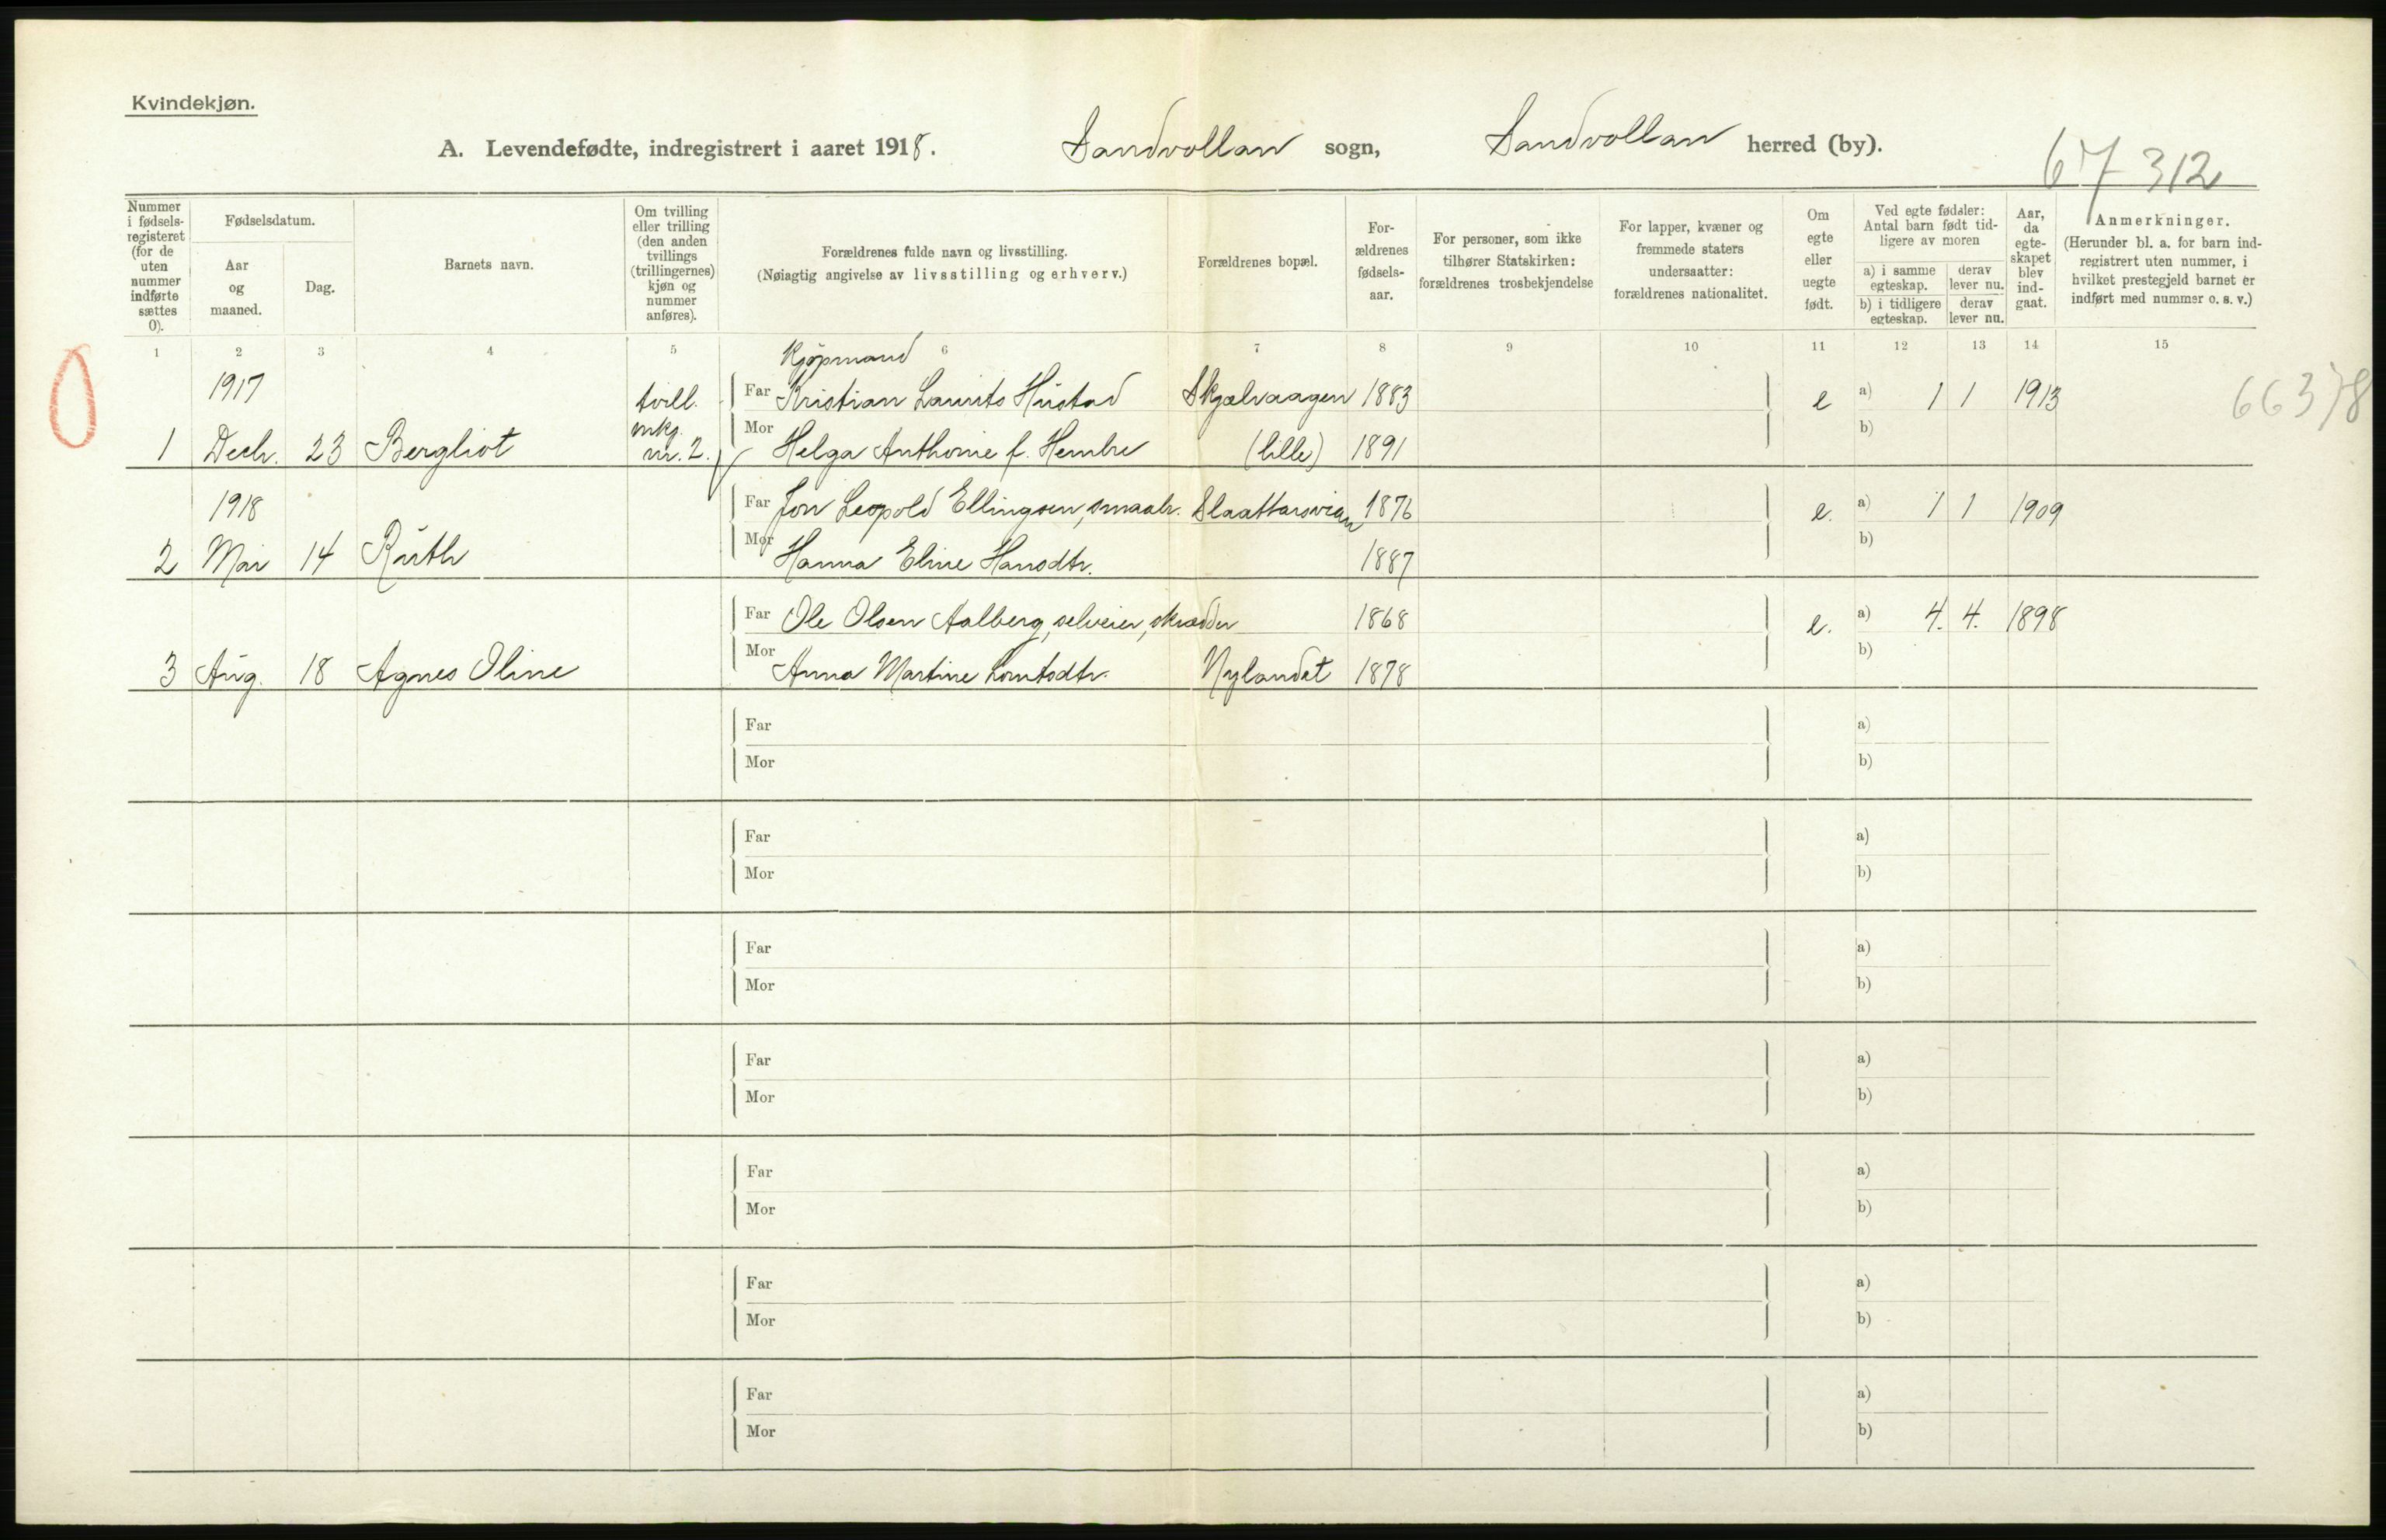 Kvindekjøn.
A. Levendefødte, indregistrert i aaret 1918. Sandvollan sogn, Sandvollan herred (by).
67312
Nummer i fødselsregisteret (for de uten nummer indførte sættes 0).
Fødselsdatum.
Aar og maaned.
Dag.
Barnets navn.
Om tvilling eller trilling (den anden tvillings (trillingernes) kjøn og nummer anføres).
Forældrenes fulde navn og livsstilling.
(Nøiagtig angivelse av livsstilling og erhverv.)
Forældrenes bopæl.
Forældrenes fødselsaar.
For personer, som ikke tilhører Statskirken: forældrenes trosbekjendelse
For lapper, kvæner og fremmede staters undersaatter: forældrenes nationalitet.
Om egte eller uegte født.
Ved egte fødsler: Antal barn født tidligere av moren
a) i samme egteskap. derav lever nu.
b) i tidligere egteskap. derav lever nu.
Aar, da egteskapet blev indgaat.
Anmerkninger.
(Herunder bl. a. for barn indregistrert uten nummer, i hvilket prestegjeld barnet er indført med nummer o. s. v.)
1 2 3 4 5 6 7 8 9 10 11 12 13 14 15
Kjøpmand
1917 tvill. Far Kristian Laurits Hustad Skjelvaagen 1883 e a) 1 1 1913 66378
mkj.
1 Decb. 23 Bergliot nr. 2. Mor Helga Anthonie f. Hembre (lille) 1891 b)
1918 Far Jon Leopold Ellingsen, smaabr. 1876 e. a) 1 1 1909
2 Mai 14 Ruth Mor Hanna Eline Hansdtr. 1887 b)
Far Ole Olsen Aalberg, selveier, skrædder 1868 e. a) 4. 4. 1898
3 Aug. 18 Agnes Oline Mor Anna Martine Lorntsdtr. Nylandet 1878 b)
Far a)
Mor b)
Far a)
Mor b)
Far a)
Mor b)
Far a)
Mor b)
Far a)
Mor b)
Far a)
Mor b)
Far a)
Mor b)